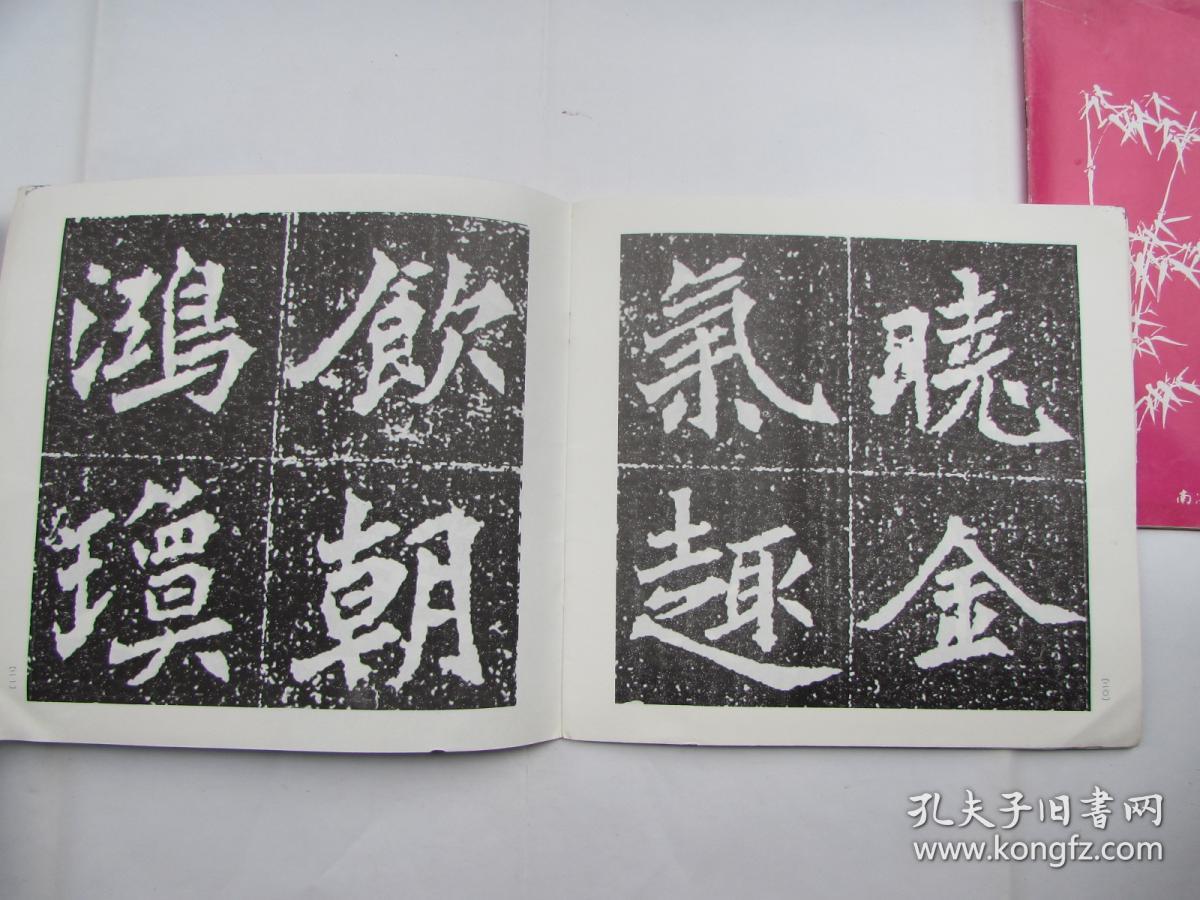 曉金
氣趣
飲朝
鴻
南
孔夫子旧书网
www.kongfz.com